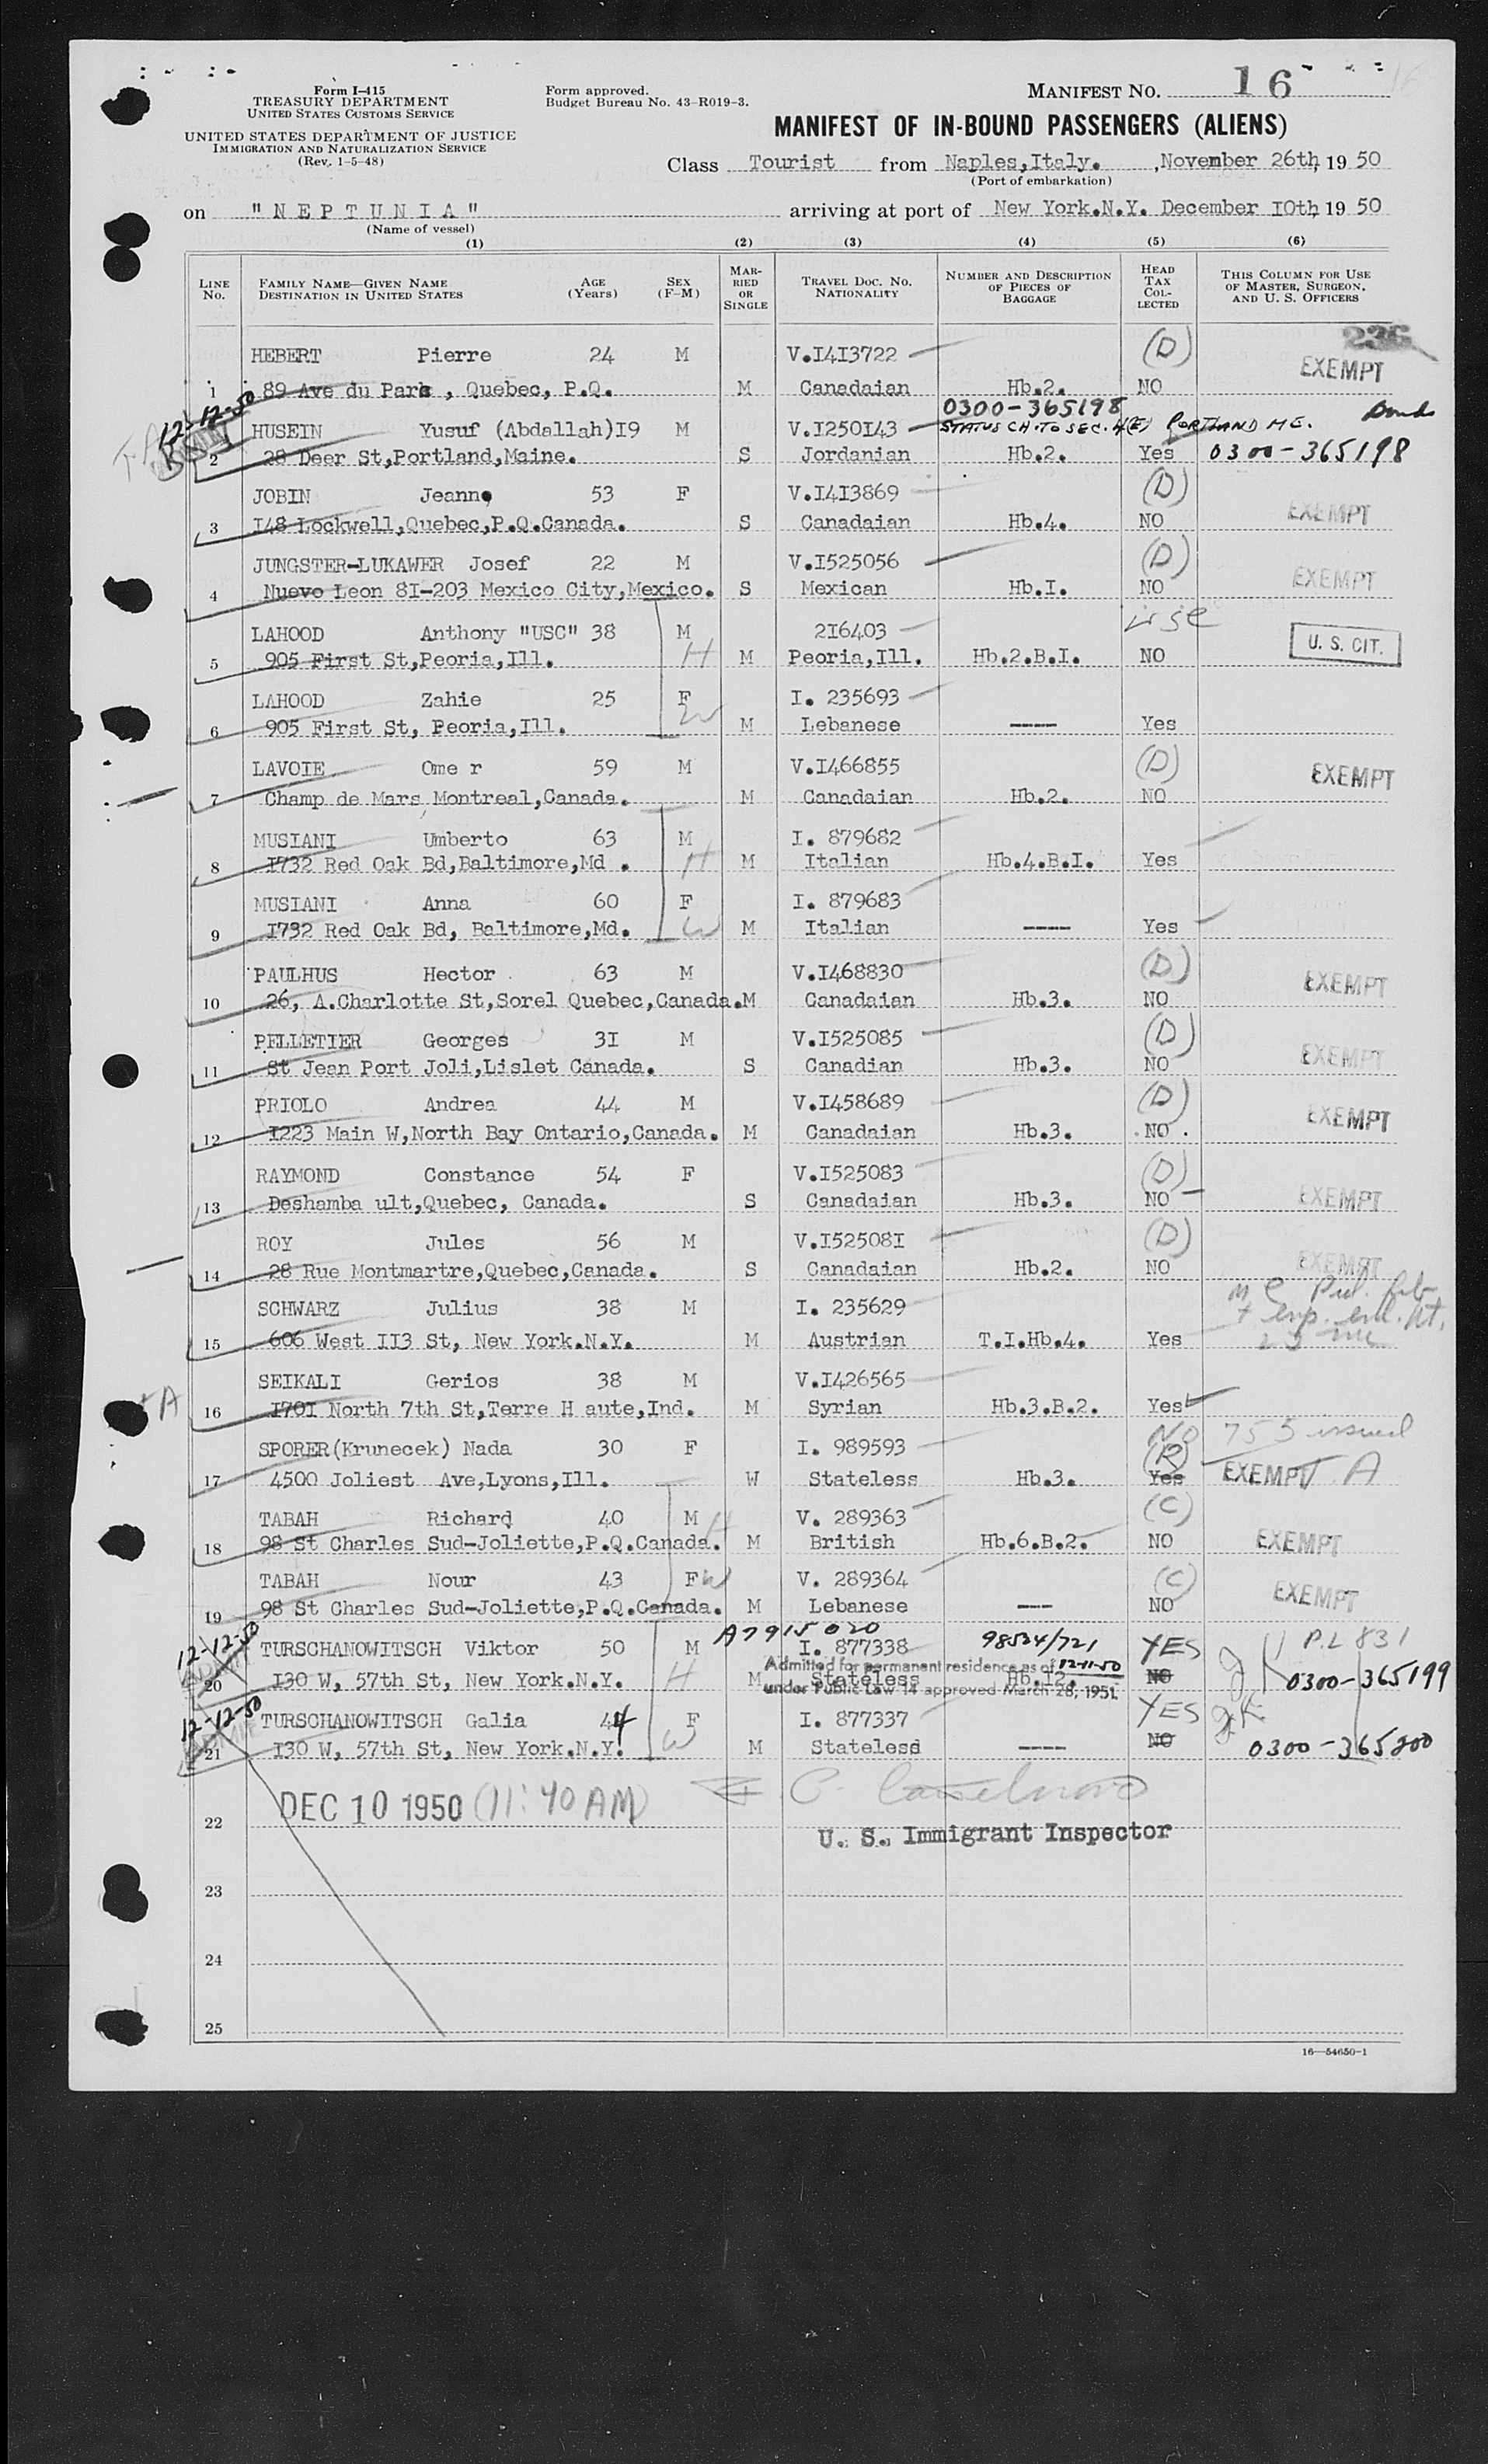 Form I-415
TREASURY DEPARTMENT
UNITED STATES CUSTOMS SERVICE
UNITED STATES DEPARTMENT OF JUSTICE
IMMIGRATION AND NATURALIZATION SERVICE
(Rev. 1-5-48)
Form approved.
Budget Bureau No. 43-R019-3.
MANIFEST NO. 16
MANIFEST OF IN-BOUND PASSENGERS (ALIENS)
Class Tourist from Naples,Italy. , November 26th, 19 50
(Port of embarkation)
on "NEPTUNIA" arriving at port of New York.N.Y. December I0th, 19 50
(Name of vessel)
(1) (2) (3) (4) (5) (6)
LINE NO.
FAMILY NAME—GIVEN NAME DESTINATION IN UNITED STATES
AGE (Years)
SEX (F-M)
MARRIED OR SINGLE
TRAVEL DOC. NO. NATIONALITY
NUMBER AND DESCRIPTION OF PIECES OF BAGGAGE
HEAD TAX COLLECTED
THIS COLUMN FOR USE OF MASTER, SURGEON, AND U. S. OFFICERS
236
HEBERT Pierre 24 M V.I4I3722 (D) EXEMPT
1 89 Ave du Park , Quebec, P.Q. M Canadaian Hb.2. NO
12-12-50 0300-365198
HUSEIN Yusuf (Abdallah)I9 M V.I250I43 STATUS CH. TO SEC. 4(E) PORTLAND ME. Bond
2 28 Deer St,Portland,Maine. S Jordanian Hb.2. Yes 0300-365198
JOBIN Jeanne 53 F V.I4I3869 (D)
3 I48 Lockwell,Quebec,P.Q.Canada. S Canadaian Hb.4. NO EXEMPT
JUNGSTER-LUKAWER Josef 22 M V.I525056 (D)
4 Nuevo Leon 8I-203 Mexico City,Mexico. S Mexican Hb.I. NO EXEMPT
LAHOOD Anthony "USC" 38 M 2I6403 U. S. CIT.
5 905 First St,Peoria,Ill. H M Peoria,Ill. Hb.2.B.I. NO
LAHOOD Zahie 25 F I. 235693
6 905 First St, Peoria,Ill. W M Lebanese ---- Yes
LAVOIE Ome r 59 M V.I466855 (D) EXEMPT
7 Champ de Mars Montreal,Canada. M Canadaian Hb.2. NO
MUSIANI Umberto 63 M I. 879682
8 I732 Red Oak Bd,Baltimore,Md . H M Italian Hb.4.B.I. Yes
MUSIANI Anna 60 F I. 879683
9 I732 Red Oak Bd, Baltimore,Md. W M Italian ---- Yes
PAULHUS Hector 63 M V.I468830 (D) EXEMPT
10 26, A.Charlotte St,Sorel Quebec,Canada.M Canadaian Hb.3. NO
PELLETIER Georges 3I M V.I525085 (D) EXEMPT
11 St Jean Port Joli,Lislet Canada. S Canadian Hb.3. NO
PRIOLO Andrea 44 M V.I458689 (D) EXEMPT
12 I223 Main W,North Bay Ontario,Canada. M Canadaian Hb.3. NO
RAYMOND Constance 54 F V.I525083 (D)
13 Deshamba ult,Quebec, Canada. S Canadaian Hb.3. NO EXEMPT
ROY Jules 56 M V.I52508I (D)
14 28 Rue Montmartre,Quebec,Canada. S Canadaian Hb.2. NO EXEMPT
SCHWARZ Julius 38 M I. 235629
15 606 West II3 St, New York.N.Y. M Austrian T.I.Hb.4. Yes
SEIKALI Gerios 38 M V.I426565
16 I70I North 7th St,Terre H aute,Ind. M Syrian Hb.3.B.2. Yes
SPORER(Krunecek) Nada 30 F I. 989593 NO (R) 755 issued
17 4500 Joliest Ave,Lyons,Ill. W Stateless Hb.3. Yes EXEMPT A
TABAH Richard 40 M V. 289363 (C)
18 98 St Charles Sud-Joliette,P.Q.Canada. H M British Hb.6.B.2. NO EXEMPT
TABAH Nour 43 F W V. 289364 (C) EXEMPT
19 98 St Charles Sud-Joliette,P.Q.Canada. M Lebanese --- NO
12-12-50 A7915020
TURSCHANOWITSCH Viktor 50 M I. 877338 98524/721 YES P.L 831
Admitted for permanent residence as of 12-11-50
20 I30 W, 57th St, New York.N.Y. H M Stateless Hb.12. NO 0300-365199
under Public Law 14 approved March 28, 1951.
12-12-50
TURSCHANOWITSCH Galia 44 F I. 877337 YES
21 I30 W, 57th St, New York.N.Y. W M Stateless ---- NO 0300-365200
22 DEC 10 1950 (11:40 AM)
U. S. Immigrant Inspector
23
24
25
16—54650-1